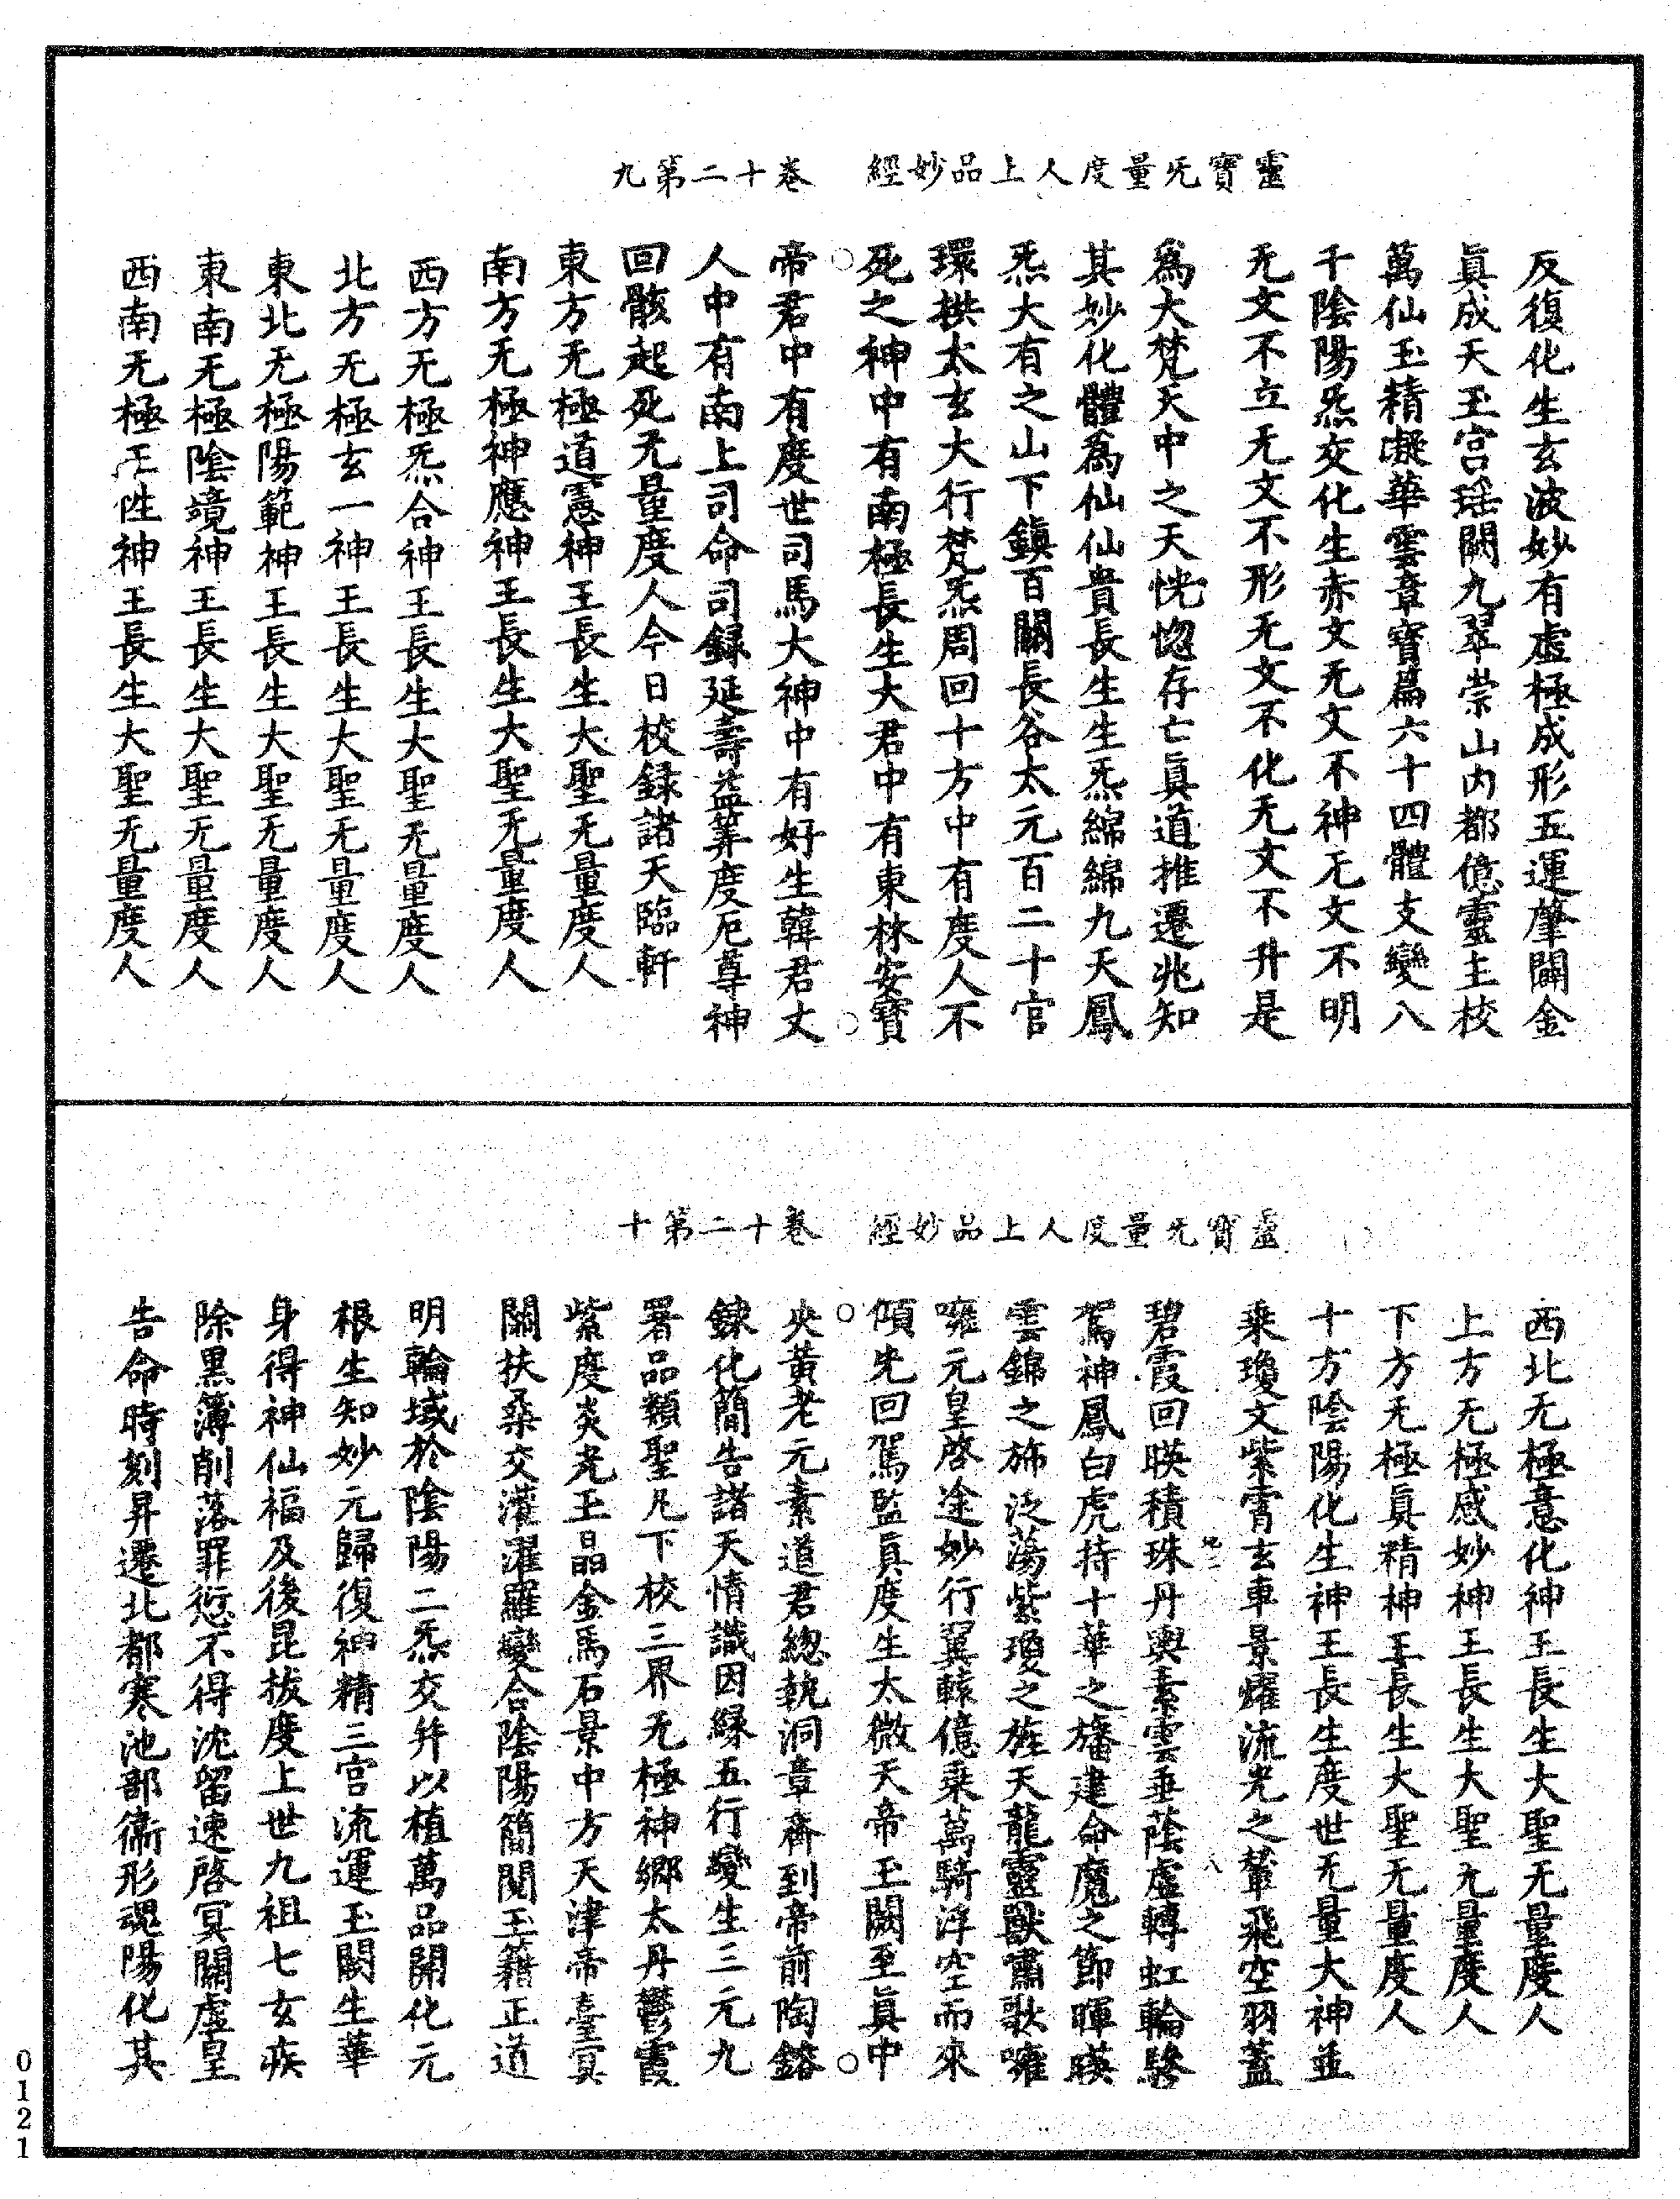 靈寶无量度人上品妙經　卷十二第九
反復化生玄波妙有虛極成形五運肇開金
眞成天玉宮瑶闕九翠崇山内都億靈主校
萬仙玉精凝華雲章寶篇六十四體支變八
千陰陽炁交化生赤文无文不神无文不明
无文不立无文不形无文不化无文不升是
爲大梵天中之天恍惚存亡眞道推遷兆知
其妙化體爲仙仙貴長生生炁綿綿九天鳳
炁大有之山下鎮百關長谷太元百二十官
環拱太玄大行梵炁周回十方中有度人不
死之神中有南極長生大君中有東林安寶
帝君中有度世司馬大神中有好生韓君丈
人中有南上司命司録延壽益筭度厄尊神
回骸起死无量度人今日校録諸天臨軒
東方无極道憲神王長生大聖无量度人
南方无極神應神王長生大聖无量度人
西方无極炁合神王長生大聖无量度人
北方无極玄一神王長生大聖无量度人
東北无極陽範神王長生大聖无量度人
東南无極陰境神王長生大聖无量度人
西南无極性神王長生大聖无量度人
靈寶无量度人上品妙經　卷十二第十
西北无極意化神王長生大聖无量度人
上方无極感妙神王長生大聖无量度人
下方无極眞精神王長生大聖无量度人
十方陰陽化生神王長生度世无量大神並
乘瓊文紫霄玄車景燿流光之輦飛空羽蓋
碧霞回暎積珠丹輿素雲垂蔭虛轉虹輪駱
駕神鳳白虎持十華之旛建命魔之節暉暎
雲錦之旆泛蕩紫瓊之旌天龍靈獸嘯歌嗈
嗈元皇啓途妙行翼轅億乘萬騎浮空而來
傾光回駕監眞度生太微天帝玉闕至眞中
央黄老元素道君緫執洞章齋到帝前陶鎔
鍊化簡告諸天情識因緣五行變生三元九
署品類聖凡下校三界无極神鄉太丹鬱霞
紫度炎光王晶金馬石景中方天津帝臺冥
關扶桑交灌濯羅變合陰陽簡閱玉籍正道
明輪域於陰陽二炁交并以植萬品開化元
根生知妙元歸復神精三宮流運玉闕生華
身得神仙福及後昆拔度上世九祖七玄疾
除黒簿削落罪愆不得沈留速啓冥關虛皇
告命時刻昇遷北都寒池部衞形魂陽化其
0121